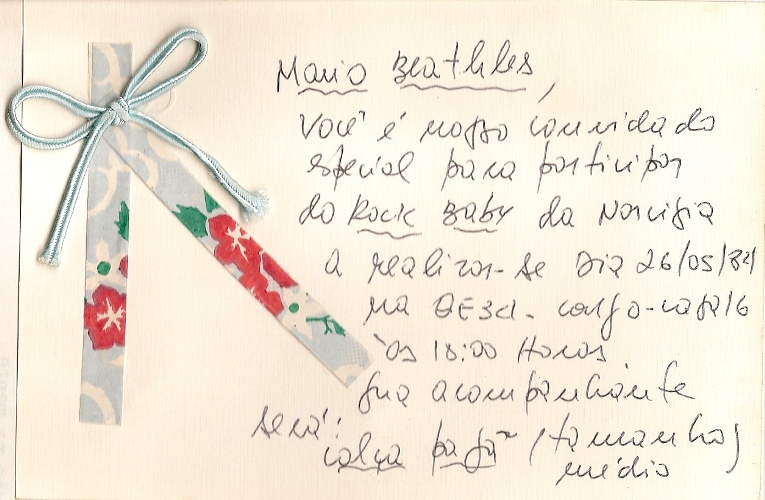 Mario Beathles,
você é nosso convidado
especial para participar
do Rock Baby da Narcísia
a realizar-se Dia 26/05/84
na QE32. conj. o-casa 16
às 18:00 Horas
Sua acompanhante
será:
calça pafã (tamanho)
médio